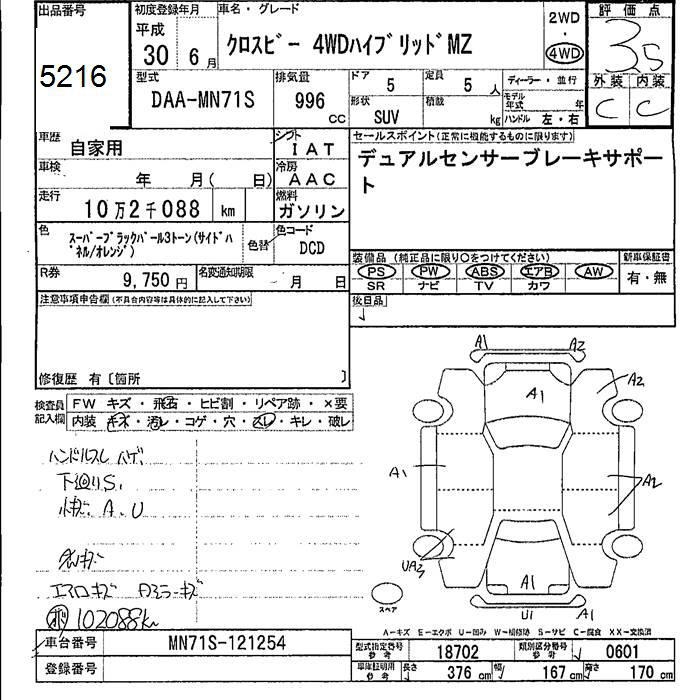 出品番号
5216
初度登録年月
平成
30年 6月
車名・グレード
クロスビー 4WDハイブリッドMZ
2WD
・
4WD
評価点
3.5
外装 内装
C C
型式
DAA-MN71S
排気量
996 cc
ドア 5
定員 5 人
形状 SUV
積載 kg
ディーラー・並行
モデル年式 年
ハンドル 左・右
車歴
自家用
シフト
IAT
車検
年 月( 日)
冷房
AAC
走行
10万2千088 km
燃料
ガソリン
色
スーパーブラックパール3トーン(サイドパネル/オレンジ)
色替
色コード
DCD
R券
9,750円
名変通知期限
月 日
セールスポイント(正常に機能するものに限ります)
デュアルセンサーブレーキサポー
ト
装備品 (純正品に限り○をつけてください)
PS PW ABS エアB AW
SR ナビ TV カワ
新車保証書
有・無
後日品
注意事項申告欄(不具合内容等は具体的に記入して下さい)
修復歴 有〔箇所 〕
検査員記入欄
FW キズ・飛石・ヒビ割・リペア跡・×要
内装 キズ・汚レ・コゲ・穴・スレ・キレ・破レ
ハンドルスレ ハゲ
下廻りS.
A.U
エアロキズ
102088km
A1 A2
A1 A2
A1 A2
UA3
A1
U1 A1
スペア
A-キズ E-エクボ U-凹み W-補修跡 S-サビ C-腐食 XX-交換済
車台番号
MN71S-121254
登録番号
型式指定番号 参考
18702
類別区分番号 参考
0601
車庫証明用 参考
長さ 376 cm
幅 167 cm
高さ 170 cm